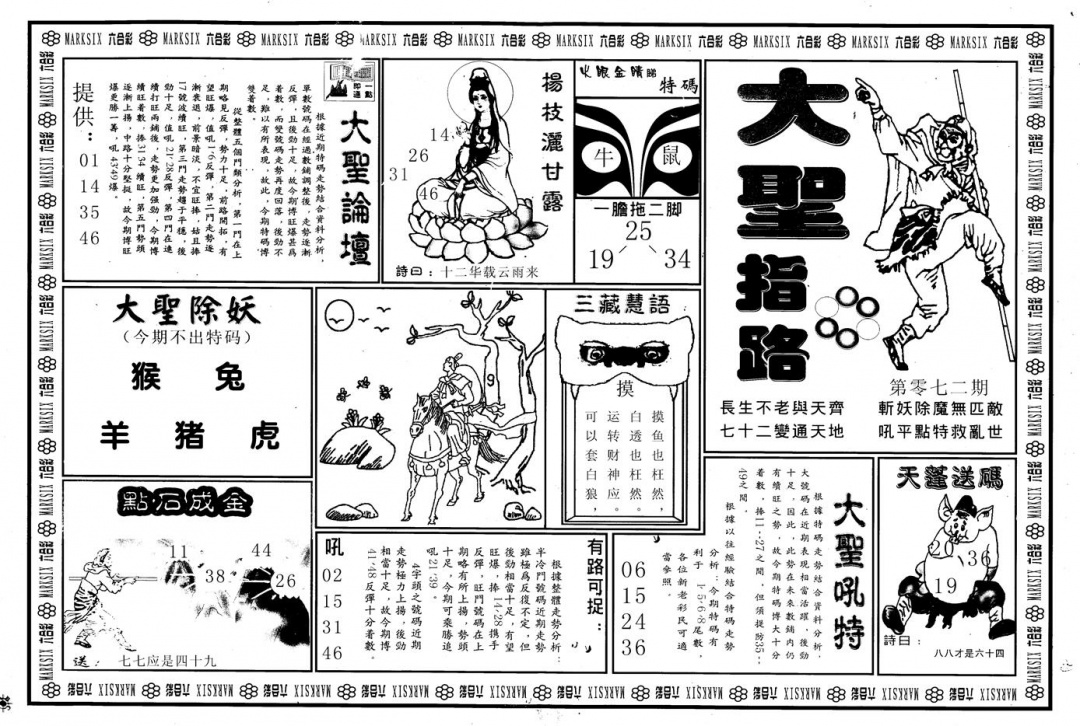 MARKSIX 六合彩 MARKSIX 六合彩 MARKSIX 六合彩 MARKSIX 六合彩 MARKSIX 六合彩 MARKSIX 六合彩 MARKSIX 六合彩 MARKSIX 六合彩 MARKSIX 六合彩 MARKSIX 六合彩
大聖指路
第零七二期
斬妖除魔無匹敵
吼平點特救亂世
長生不老與天齊
七十二變通天地
火眼金睛睇
特碼
牛
鼠
一膽拖二脚
25
19
34
楊枝灑甘露
14
26
31
46
詩曰：十二华载云雨来
一點即通
大聖論壇
根據近期特碼走勢結合資料分析，
單數號碼在經過數鋪調整後，走勢逐漸
反彈，且後勁十足，故今期博旺爆甚爲
着數，而雙號碼走勢再度回落，後勁不
足，雖以有所表現，故此，今期特碼博
雙着數。
從整體五個門類分析，第一門在上
期略見反彈，勢力十足，前路開拓，有
望旺爆，值吼1·6反彈，第二門走勢逐
漸衰退，前景暗淡，不宜旺捧，姑且捧
17號波續旺，第三門走勢趨于平穩，後
勁十足，值吼21·28反彈，第四門在連
續打旺兩鋪後，走勢更加强勁，今期博
續旺看數，捧31·34續旺，第五門勢頭
逐漸上揚，中路十分堅挺，故今期博旺
爆更勝一籌，吼43·49爆。
提供：
01
14
35
46
大聖除妖
（今期不出特码）
猴 兔
羊 猪 虎
9
三藏慧語
摸
摸鱼也枉然，
白透也枉然。
运转财神应，
可以套白狼。
點石成金
11
44
38
26
送：七七应是四十九
有路可捉：
根據整體走勢分析：
半冷門號碼近期走勢
雖極爲反復不定，但
後勁相當十足，有望
旺爆，捧14·28携手
反彈，旺門號碼在上
期略有所上揚，勢頭
十足，今期可乘勝追
吼21·39。
4字頭之號碼近期
走勢極力上揚，後勁
相當十足，故今期博
41·48反彈十分着數。
吼
02
15
31
46
大聖吼特
根據特碼走勢結合資料分析，
大號碼在近期表現相當活躍，後勁
十足，因此，此勢在未來數鋪内仍
有續旺之勢，故今期特碼博大十分
着數，捧11·27之間，但須提防35·
49之間。
根據以往經驗結合特碼走勢
分析：今期特碼有
利于1·5·6·8尾數。
各位新老彩民可適
當參照。
06
15
24
36
天蓬送碼
20
36
19
詩曰：
八八才是六十四